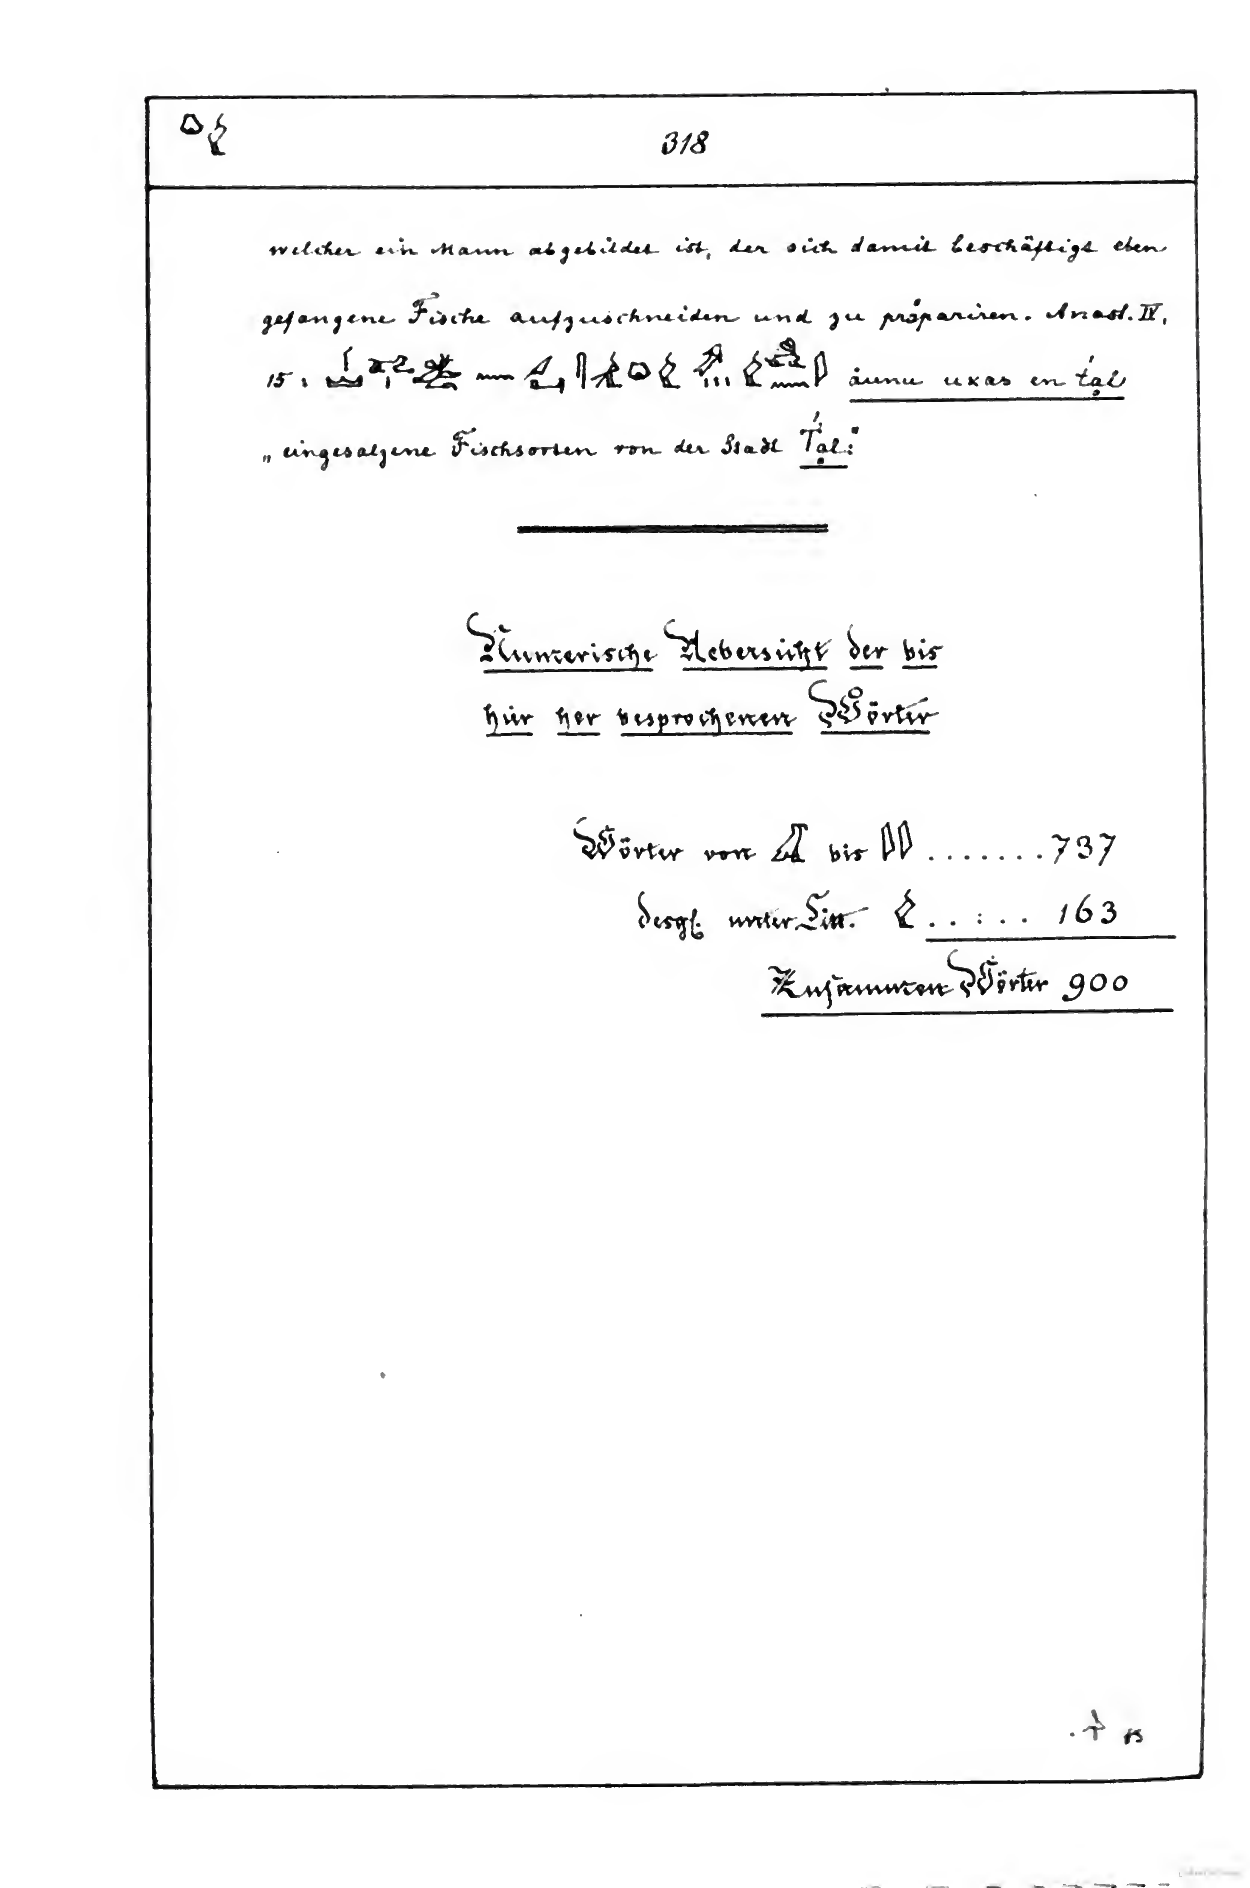 318
welcher ein Mann abgebildet ist, der sich damit beschäftigt eben
gefangene Fische aufzuschneiden und zu präpariren. Anast. IV,
15: āunu uxas en
„eingesalzene Fischsorten von der Stadt
Numerische Uebersicht der bis
hier her besprochenen Wörter
Wörter von 𓄿 bis 𓇌 ....... 737
desgl. unter Litt. 𓅱 ..:.. 163
Zusammen Wörter 900